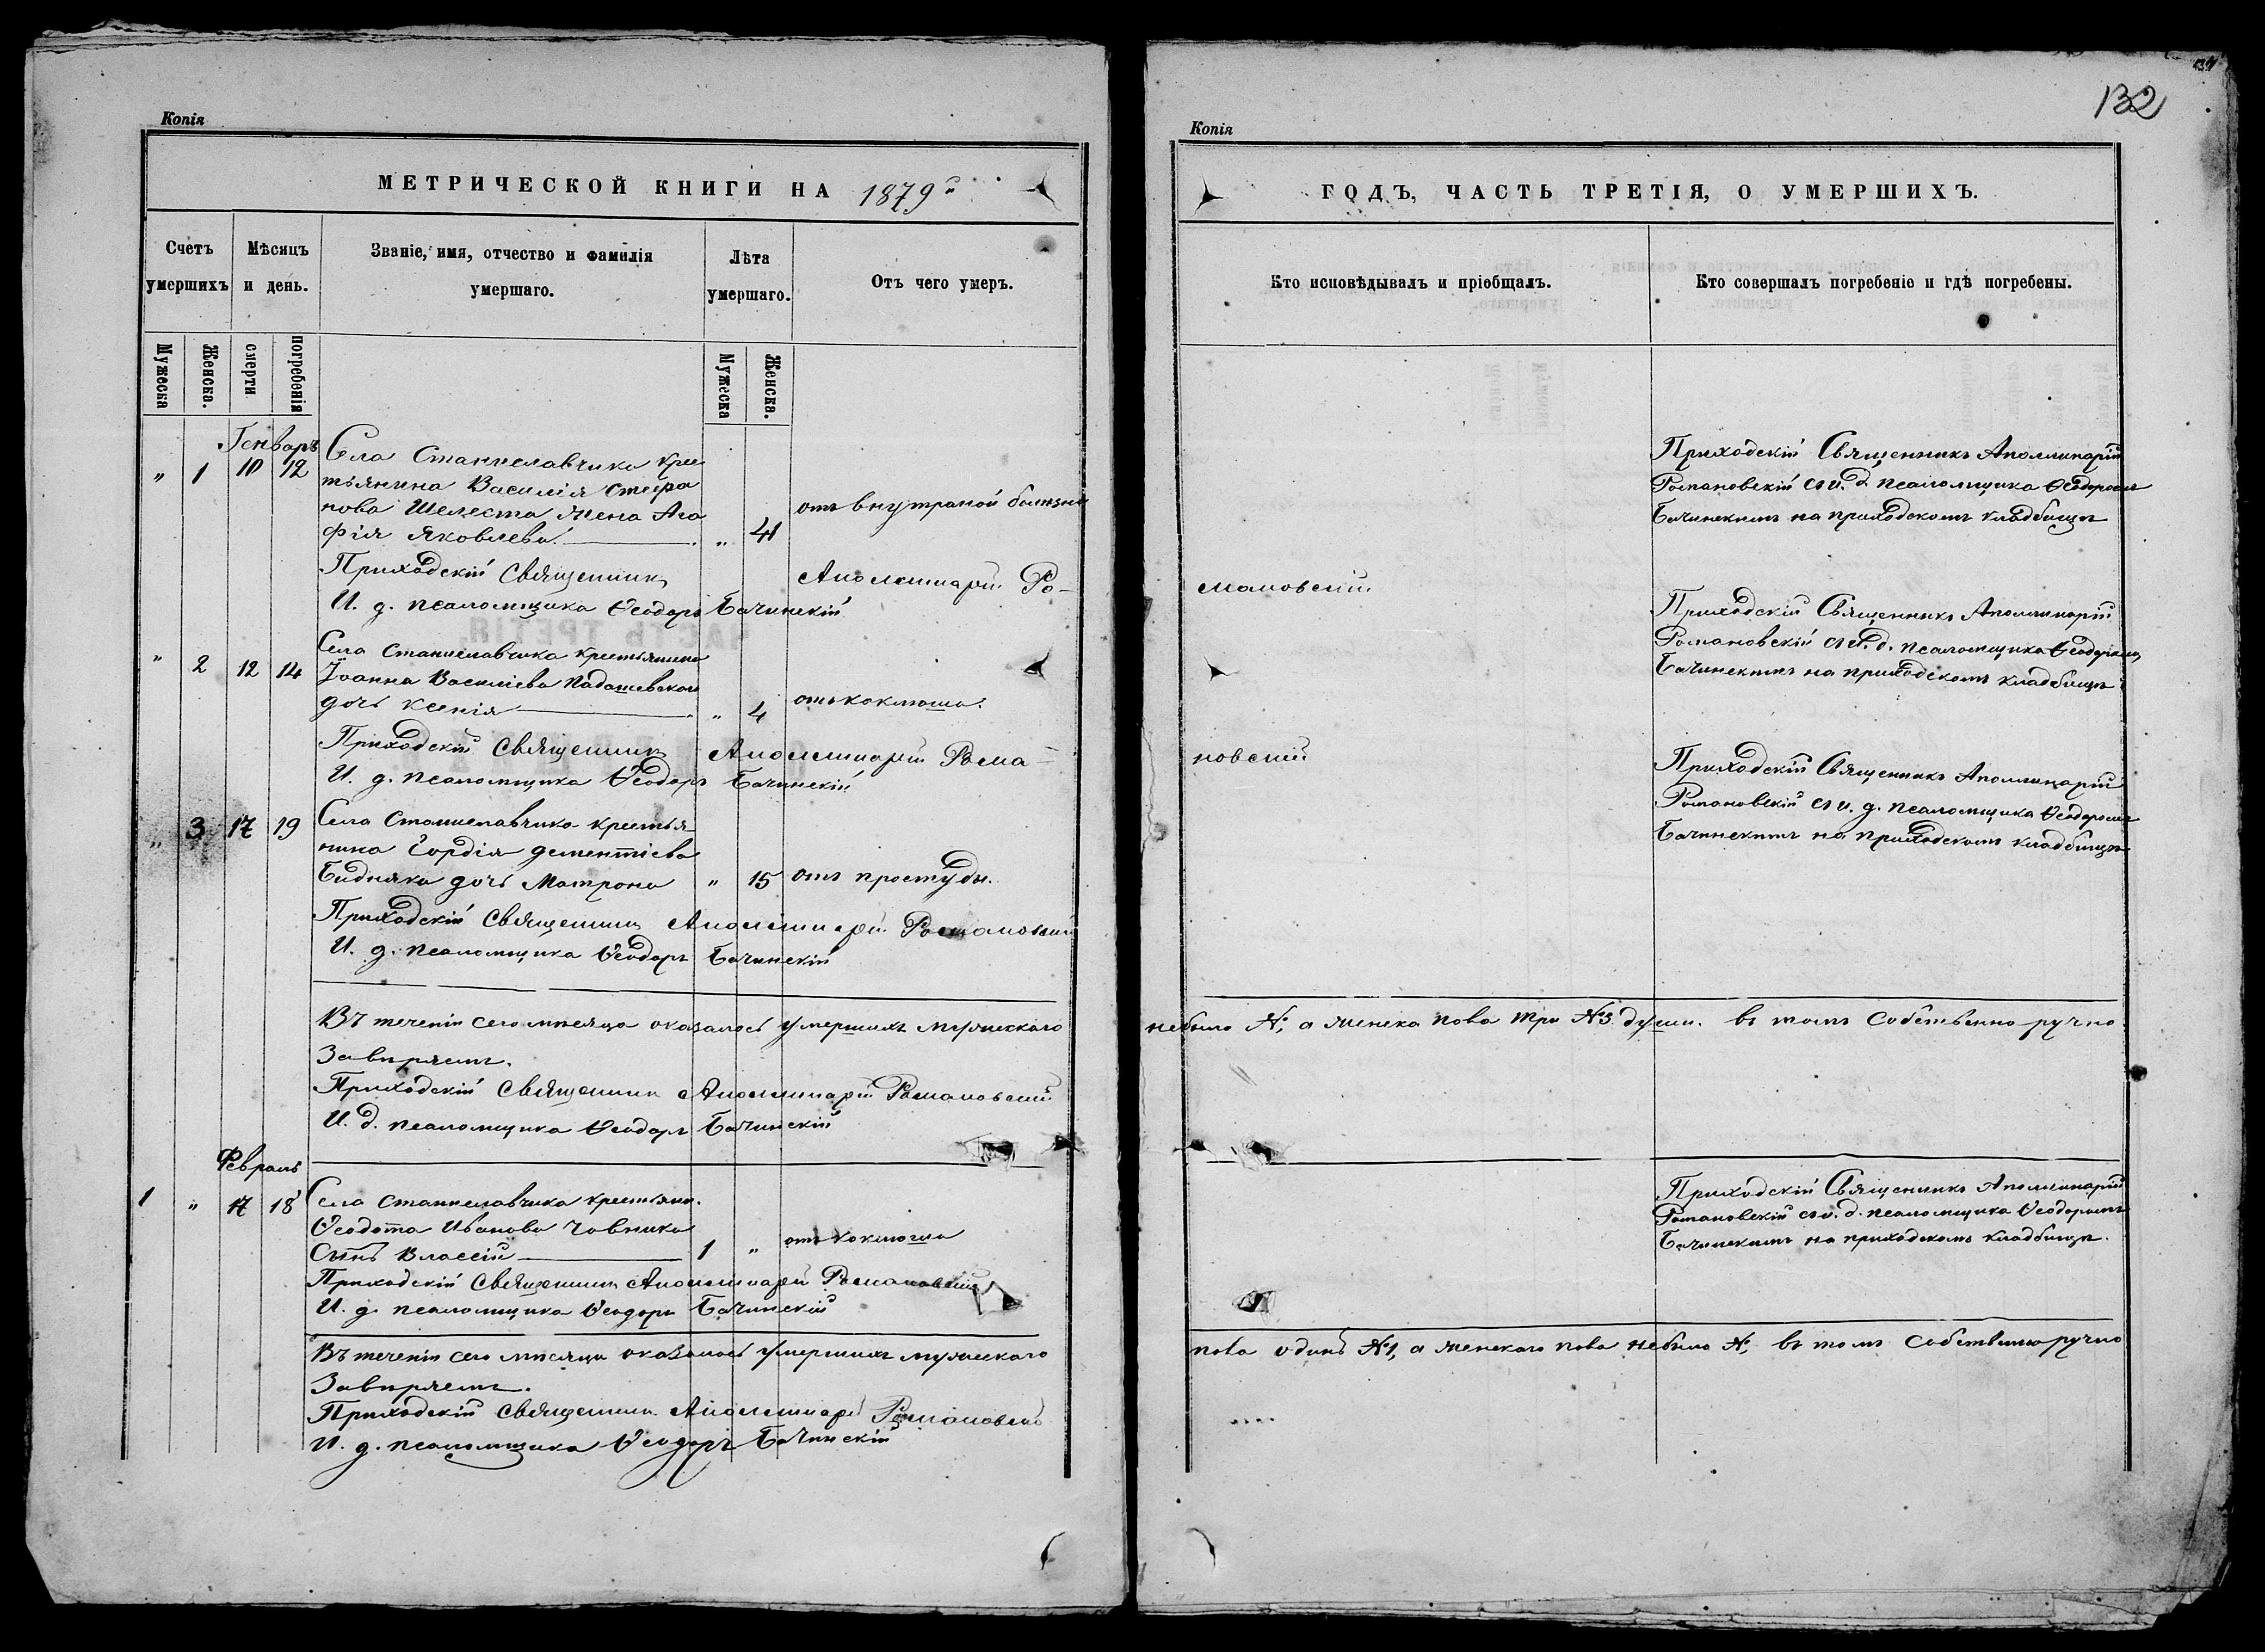 Копія
МЕТРИЧЕСКОЙ КНИГИ НА 1879й
Счетъ умершихъ
Мѣсяцъ и день.
Званіе, имя, отчество и фамилія умершаго.
Лѣта умершаго.
Отъ чего умеръ.
Мужеска
Женска.
смерти
погребенія
Мужеска
Женска.
Генварь
„ 1 10 12 Села Станиславчика крес
тьянина Василія Стефа
нова Шелеста жена Ага
фія Яковлева. „ 41 отъ внутраной болѣзни
Приходскій Священникъ Аполлинарій Ро-
И. д. псаломщика Ѳеодоръ Бачинскій
„ 2 12 14 Села Станиславчика крестьянина
Іоанна Василіева Падашевскаго
дочь Ксенія „ 4 отъ коклюша.
Приходскій Священникъ Аполлинарій Рома-
И. д. псаломщика Ѳеодоръ Бачинскій
„ 3 17 19 Села Станиславчика крестья-
нина Гордія Дементіева
Бидняка дочь Матрона „ 15 отъ простуды.
Приходскій Священникъ Аполлинарій Романовскій
И. д. псаломщика Ѳеодоръ Бачинскій
Въ теченіи сего мѣсяца оказалось умершихъ мужескаго
Завѣряемъ.
Приходскій Священникъ Аполлинарій Романовскій
И. д. псаломщика Ѳеодоръ Бачинскій
Февраль
1 „ 17 18 Села Станиславчика крестьяни.
Ѳеодота Иванова Човника
Сынъ Власій 1 „ отъ коклюша
Приходскій Священникъ Аполлинарій Романовскій
И. д. псаломщика Ѳеодоръ Бачинскій
Въ теченіи сего мѣсяца оказалось умершихъ мужескаго
Завѣряемъ.
Приходскій Священникъ Аполлинарій Романовскій
И. д. псаломщика Ѳеодоръ Бачинскій
132
Копія
ГОДЪ, ЧАСТЬ ТРЕТІЯ, О УМЕРШИХЪ.
Кто исповѣдывалъ и пріобщалъ.
Кто совершалъ погребеніе и гдѣ погребены.
Приходскій Священникъ Аполлинарій
Романовскій съ и. д. псаломщика Ѳеодоромъ
Бачинскимъ на приходскомъ кладбищѣ
мановскій
Приходскій Священникъ Аполлинарій
Романовскій съ и. д. псаломщика Ѳеодоромъ
Бачинскимъ на приходскомъ кладбищѣ
новскій
Приходскій Священникъ Аполлинарій
Романовскій съ и. д. псаломщика Ѳеодоромъ
Бачинскимъ на приходскомъ кладбищѣ
небыло №, а женска пола три №3 души. въ томъ собственно ручно
Приходскій Священникъ Аполлинарій
Романовскій съ и. д. псаломщика Ѳеодоромъ
Бачинскимъ на приходскомъ кладбищѣ.
пола одинъ №1, а женскаго пола небыло №, въ томъ собственноручно